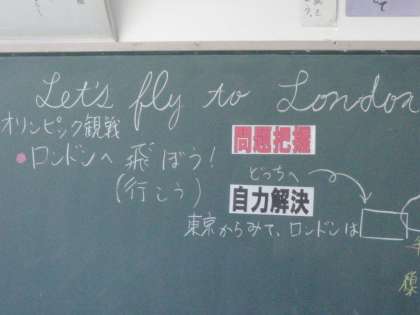 Let's fly to London
オリンピック観戦
●ロンドンへ 飛ぼう!
(行こう)
問題把握
どっちへ
自力解決
東京からみて、ロンドンは